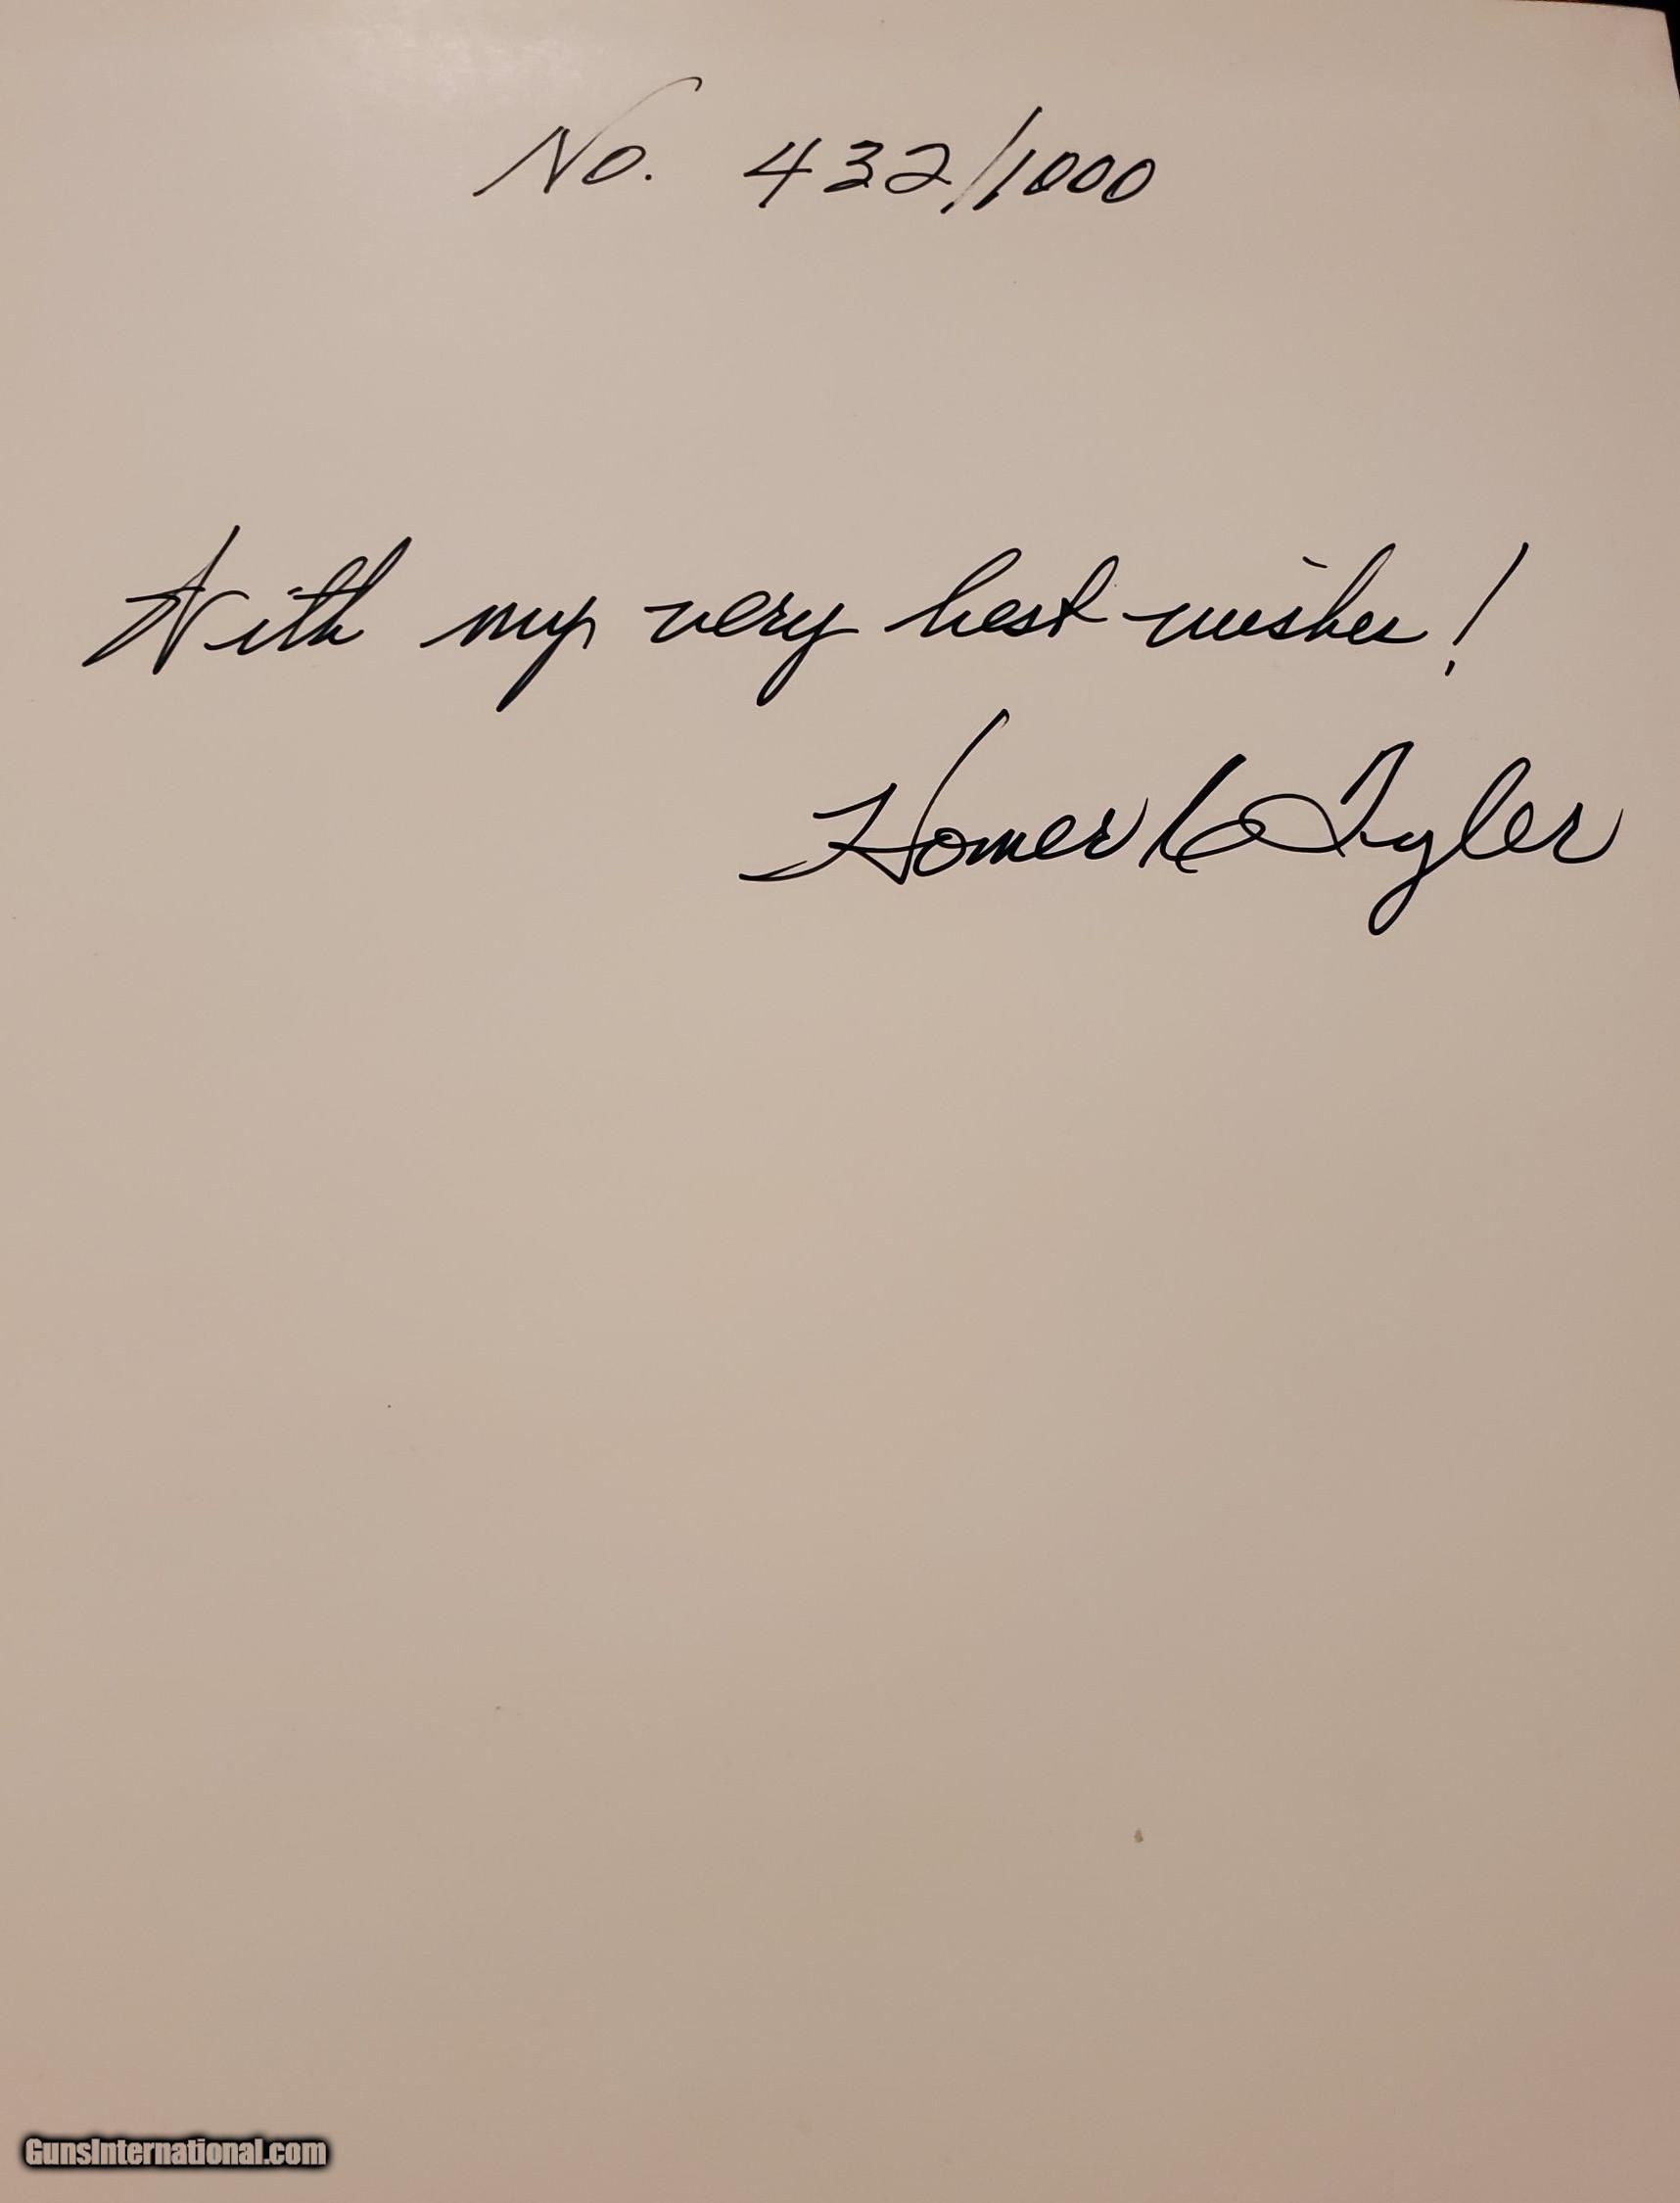 No. 432/1000
With my very best wishes!
Homer C Tyler
GunsInternational.com